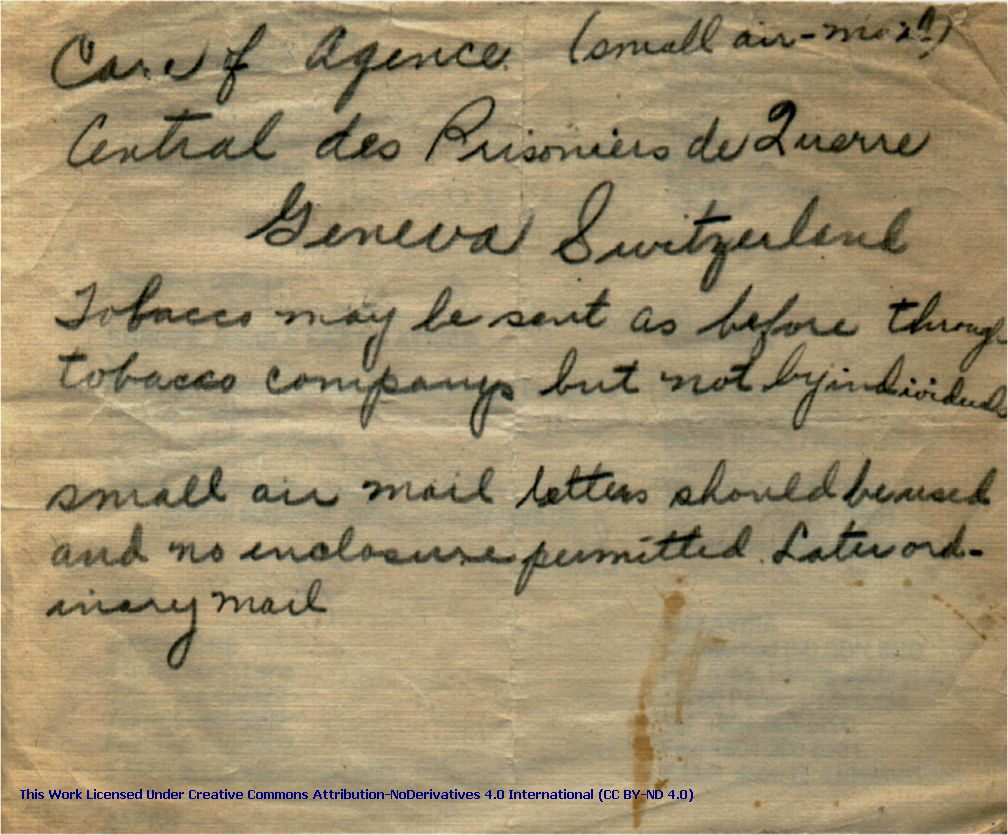 Care of Agence (small air-mail)
Central des Prisoniers de Guerre
Geneva Switzerland
Tobacco may be sent as before through
tobacco companys but not by individuals
small air mail letters should be used
and no enclosure permitted. Later ord-
inary mail
This Work Licensed Under Creative Commons Attribution-NoDerivatives 4.0 International (CC BY-ND 4.0)